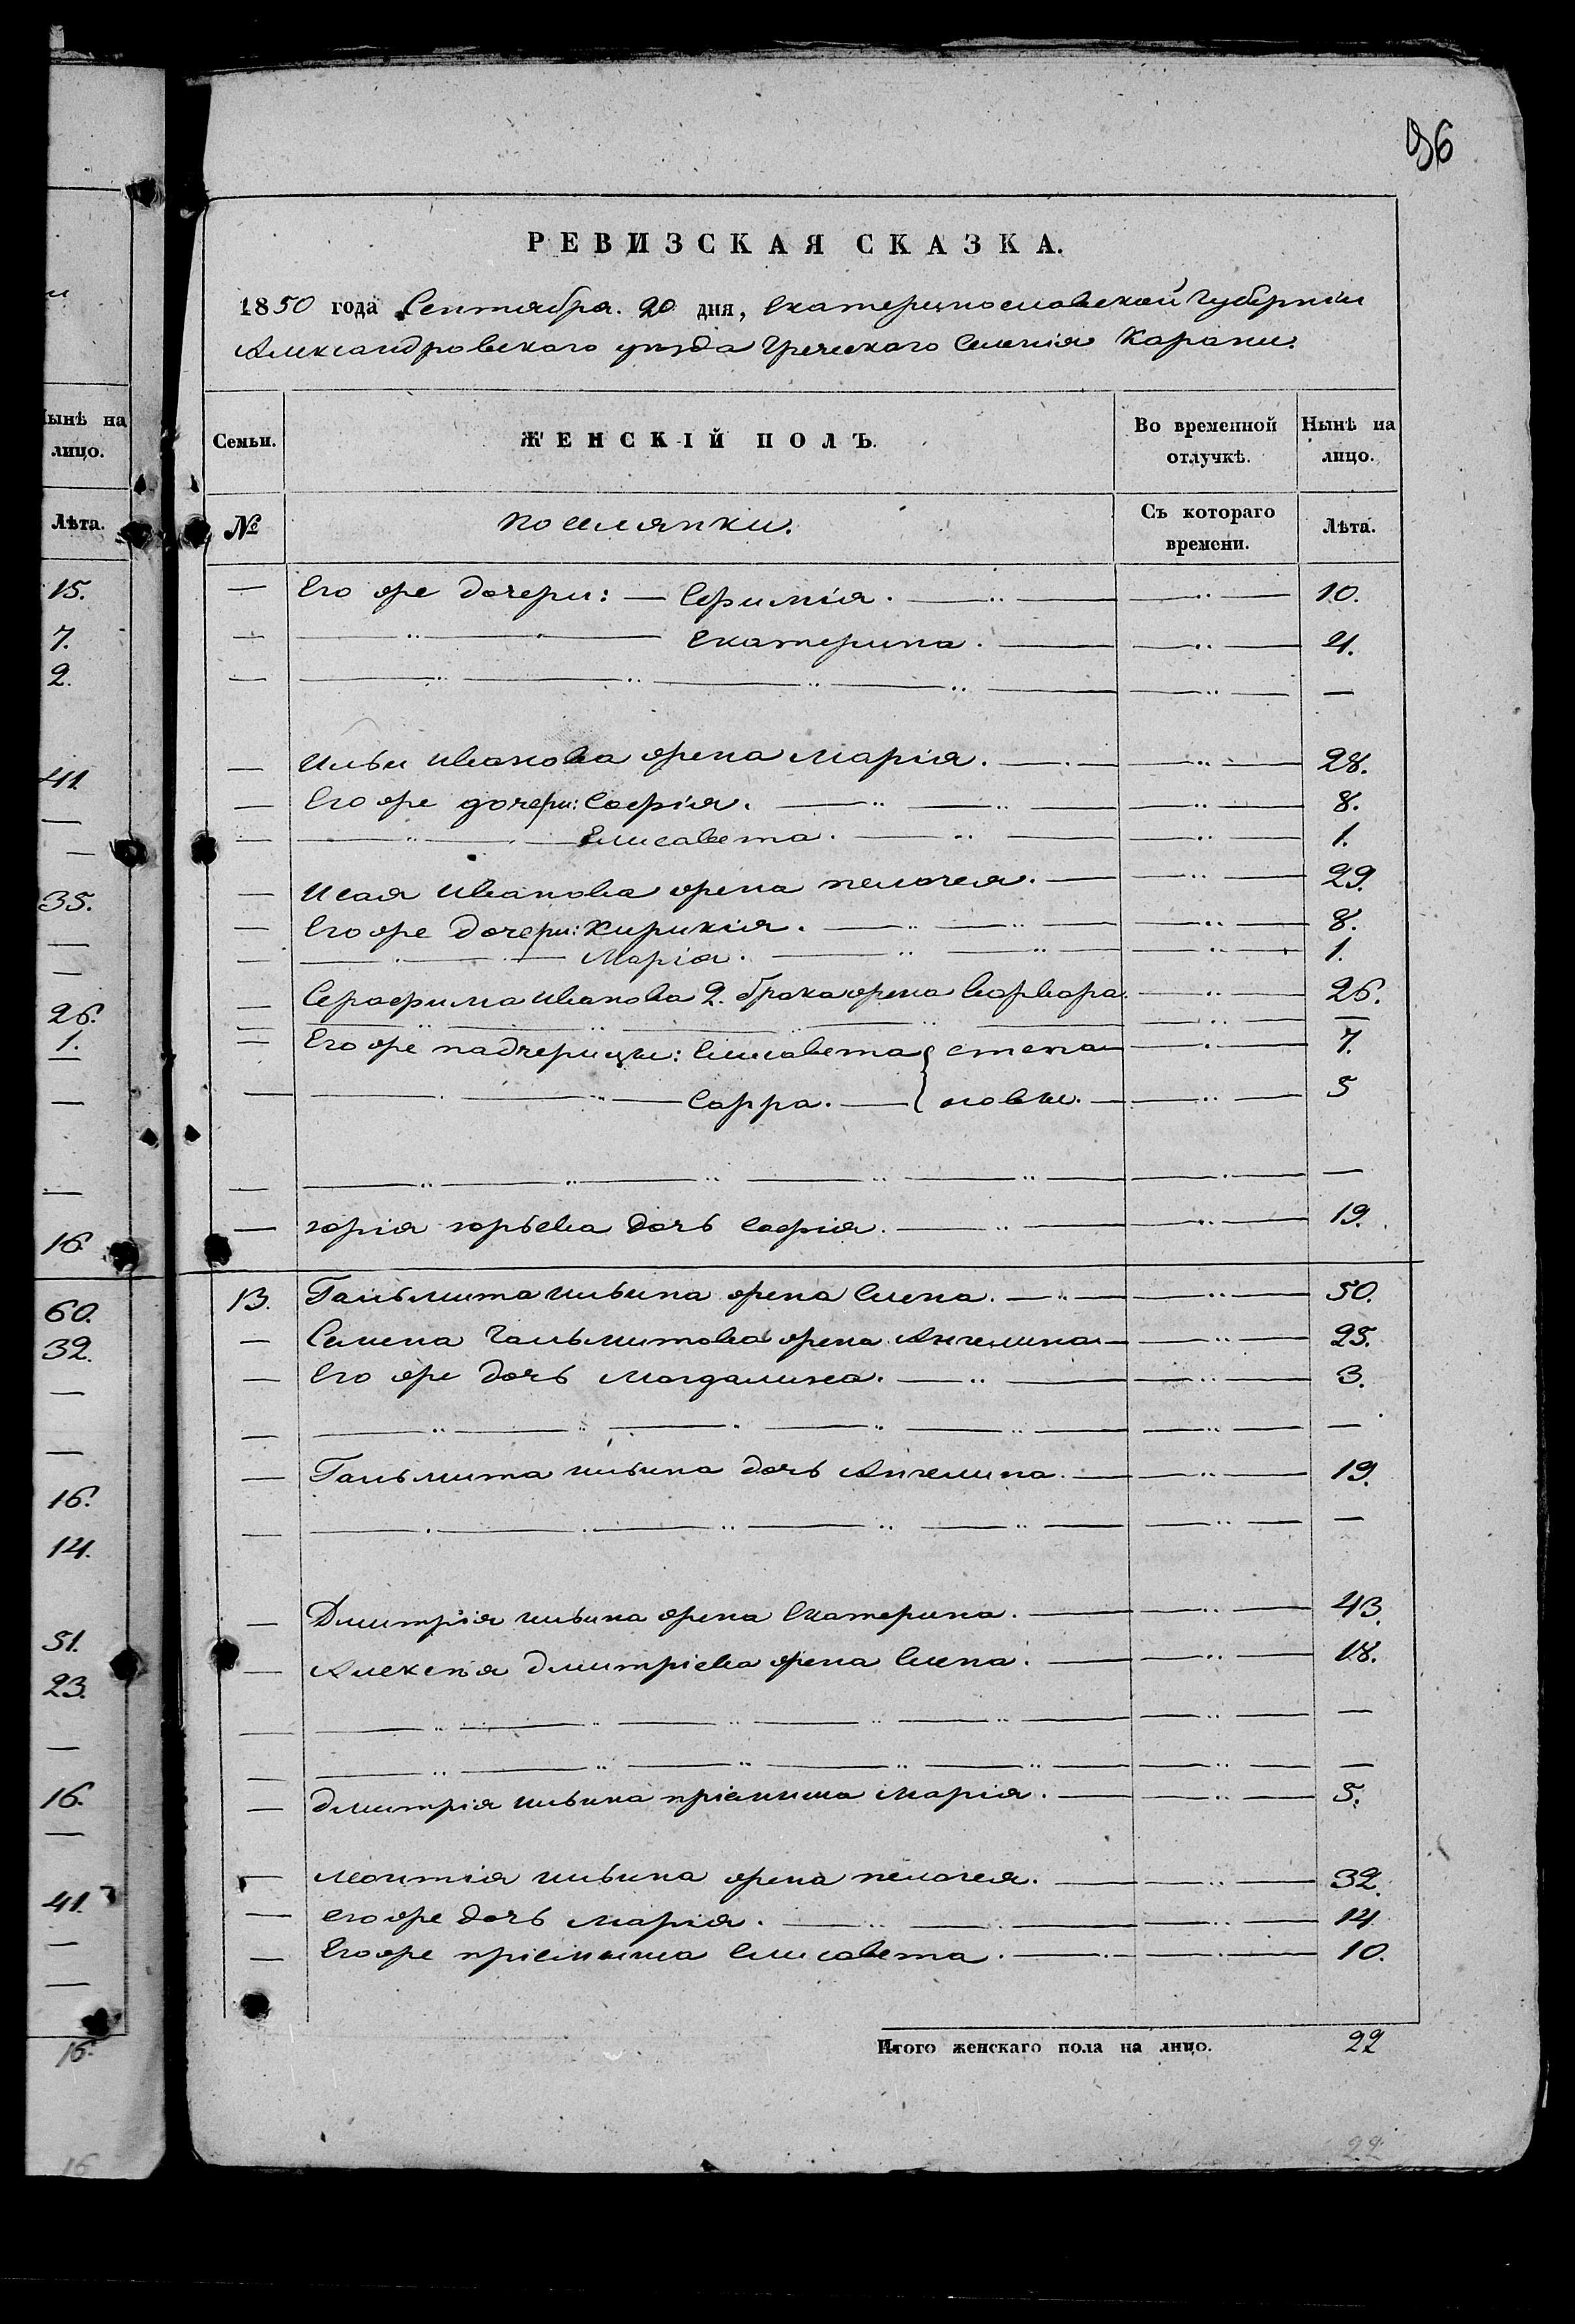 96
РЕВИЗСКАЯ СКАЗКА.
1850 года Сентября. 20 дня, Екатеринославской Губерніи
Александровского уѣзда Греческого Селенія Карани.
Нынѣ на лицо.
Лѣта.
15.
7.
2.
41.
—
—
35.
—
—
26.
1.
—
—
—
16.
60.
32.
—
—
16.
14.
51.
23.
—
16.
—
41.
—
—
16.
16
Семьи. ЖЕНСКІЙ ПОЛЪ. Во временной отлучкѣ. Нынѣ на лицо.
№ Поселянки. Съ котораго времени. Лѣта.
— Его же дочери: — Ефимія. — 10.
— Екатерина. — 4.
— —
— Ильи Иванова жена Марія. — 28.
— Его же дочери: Софія. — 8.
— Елисавета. — 1.
— Исая Иванова жена Пелагея. — 29.
— Его же дочери: Кирикія. — 8.
— Марія. — 1.
— Серафима Иванова 2. брака жена Варвара. — 26.
— —
— Его же падчерицы: Елисавета } степа — 7.
— Сарра. — } новы. — 5
— —
— Юрія Юрьева дочь Софія. — 19.
13. Гальмита Ильина жена Елена. — 50.
— Семена Гальмитова жена Ангелина — 25.
— Его же дочь Магдалина. — 3.
— —
— Гальмита Ильина дочь Ангелина. — 19.
— —
— Дмитрія Ильина жена Екатерина. — 43.
— Алексѣя Дмитріева жена Елена. — 18.
— —
— —
— Дмитрія Ильина пріемыша Марія. — 5.
— Леонтія Ильина жена Пелагея. — 32.
— Его же дочь Марія. — 14.
— Его же пріемыша Елисавета. — 10.
Итого женскаго пола на лицо. 22
22